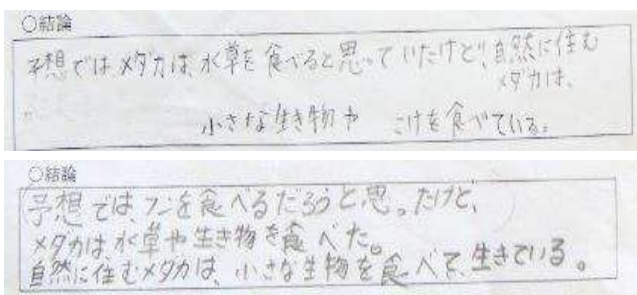 ○結論
予想ではメダカは、水草を食べると思っていたけど、自然に住む
メダカは、
小さな生き物や こけを食べている。
○結論
予想では、フンを食べるだろうと思ったけど、
メダカは、水草や生き物を食べた。
自然に住むメダカは、小さな生物を食べて、生きている。